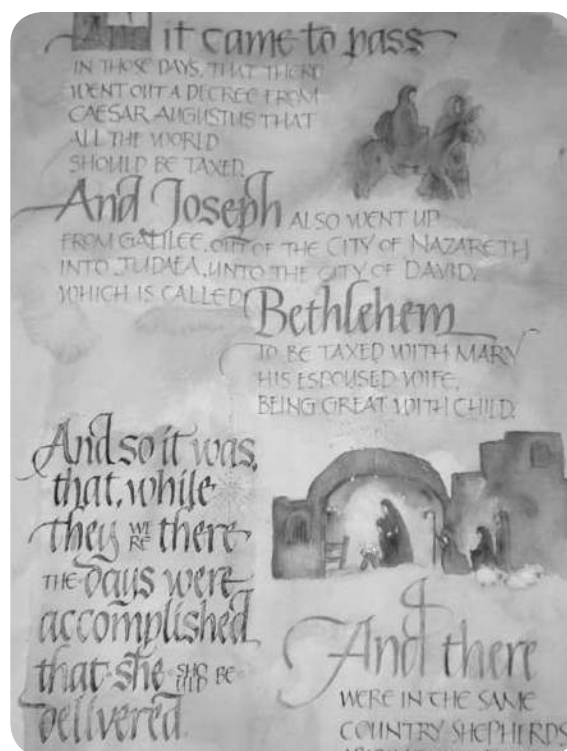 And it came to pass
IN THOSE DAYS, THAT THERE
WENT OUT A DECREE FROM
CAESAR AUGUSTUS THAT
ALL THE WORLD
SHOULD BE TAXED.
And Joseph ALSO WENT UP
FROM GALILEE, OUT OF THE CITY OF NAZARETH
INTO JUDAEA, UNTO THE CITY OF DAVID,
WHICH IS CALLED Bethlehem
TO BE TAXED WITH MARY
HIS ESPOUSED WIFE,
BEING GREAT WITH CHILD.
And so it was,
that, while
they WERE there
THE days were
accomplished
that she SHOULD BE
delivered
And there
WERE IN THE SAME
COUNTRY SHEPHERDS